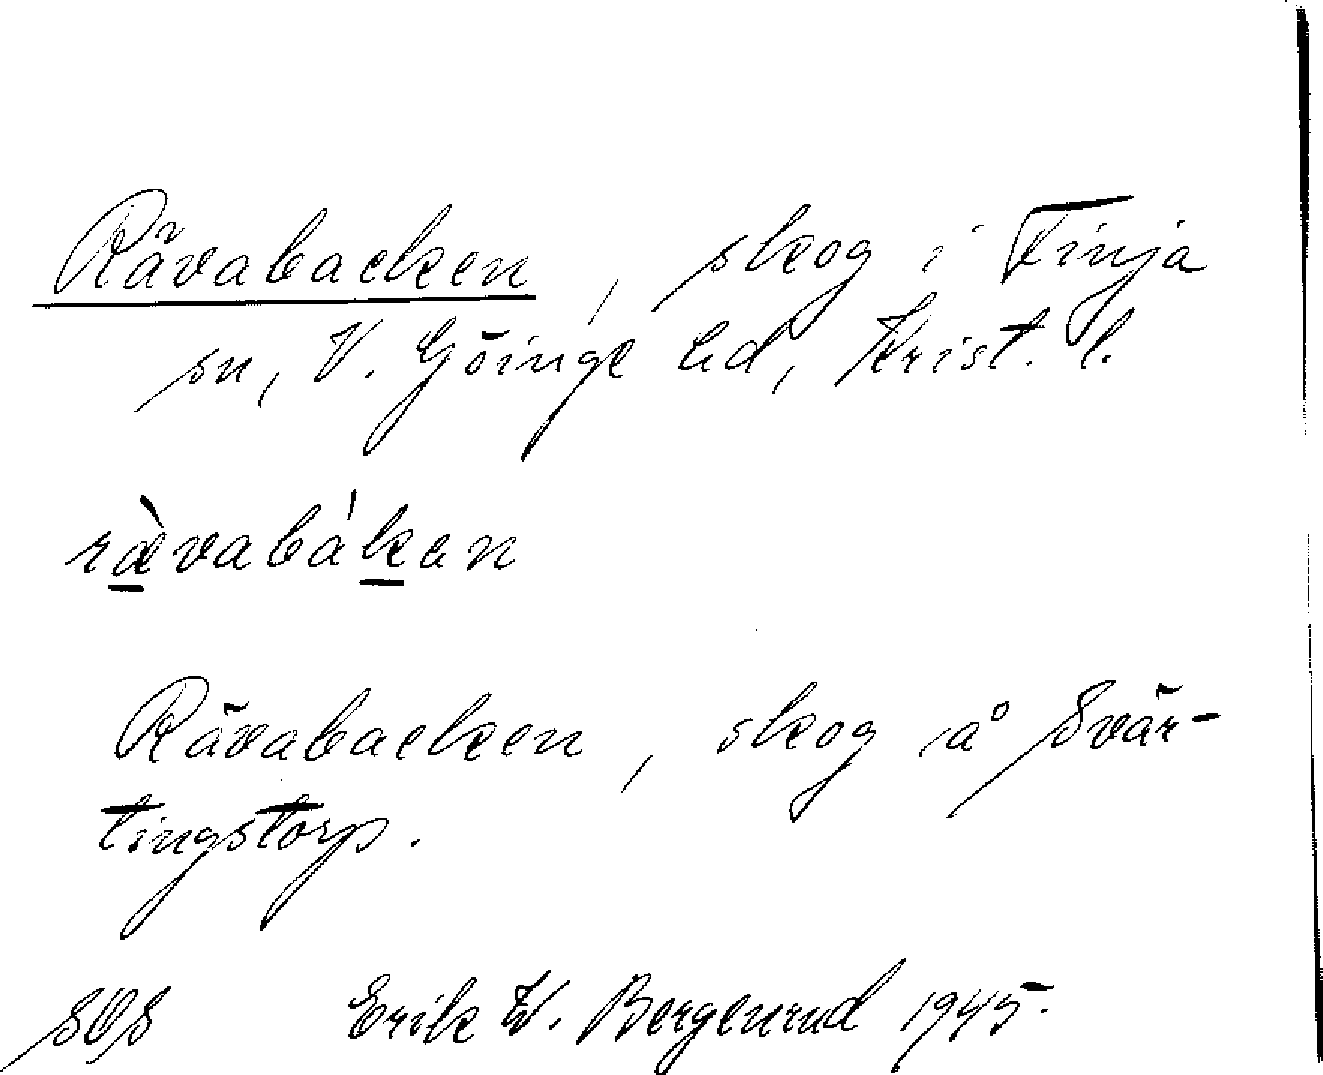 Rävabacken, skog i Finja
sn, V. Göinge hd, Krist. l.
ræ̀vabákan
Rävabacken, skog å Svär-
tingstorp.
Erik W. Bergenrud 1945.